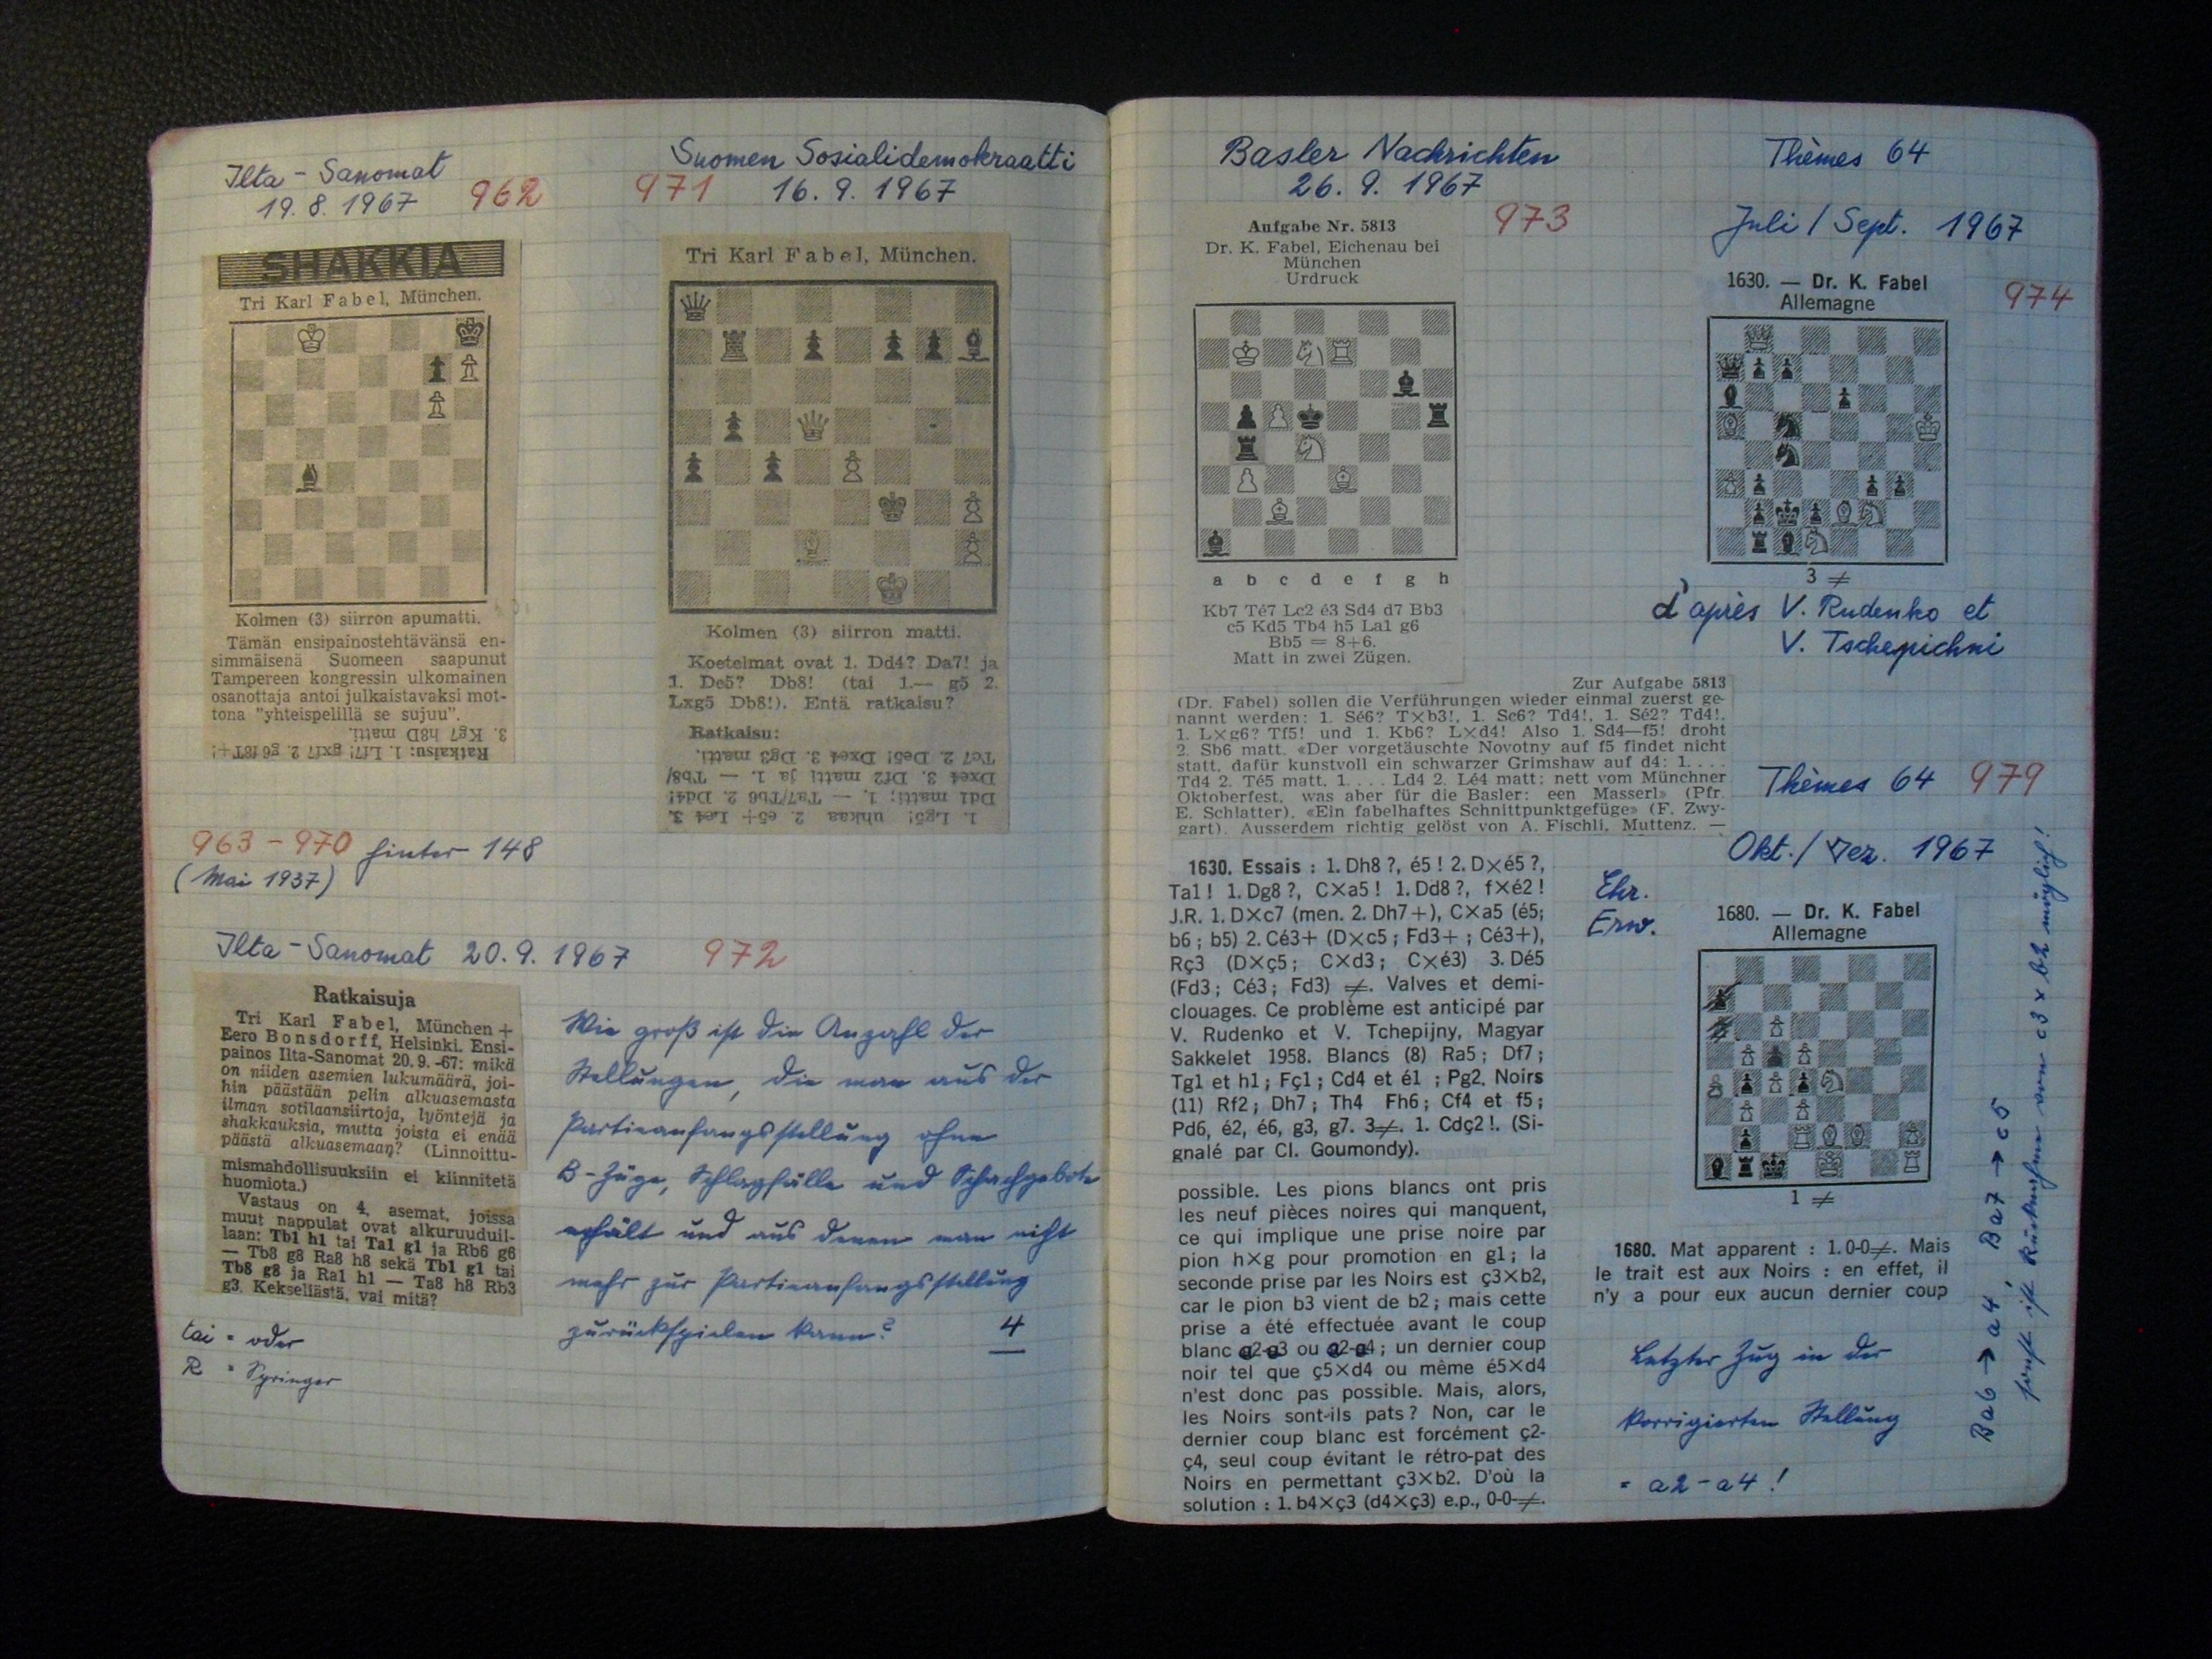 Ilta-Sanomat
19. 8. 1967 962
SHAKKIA
Tri Karl Fabel, München.
Kolmen (3) siirron apumatti.
Tämän ensipainostehtävänsä en-
simmäisenä Suomeen saapunut
Tampereen kongressin ulkomainen
osanottaja antoi julkaistavaksi mot-
tona "yhteispelillä se sujuu".
Ratkaisu: 1. Lf7! gxf7 2. g6 f8T+!
3. Kg7 h8D matti.
Suomen Sosialidemokraatti
971 16. 9. 1967
Tri Karl Fabel, München.
Kolmen (3) siirron matti.
Koetelmat ovat 1. Dd4? Da7! ja
1. De5? Db8! (tai 1.— g5 2.
Lxg5 Db8!). Entä ratkaisu?
Ratkaisu:
1. Lg5! uhkaa 2. e5+ Le4 3.
Dd1 matti; 1. — Ta7/Tb6 2. Dd4!
Dxe4 3. Df2 matti ja 1. — Tb8/
Tc7 2. De5! Dxe4 3. Dg3 matti.
963 – 970 hinter 148
(Mai 1937)
Ilta-Sanomat 20. 9. 1967 972
Ratkaisuja
Tri Karl Fabel, München +
Eero Bonsdorff, Helsinki. Ensi-
painos Ilta-Sanomat 20.9.-67: mikä
on niiden asemien lukumäärä, joi-
hin päästään pelin alkuasemasta
ilman sotilaansiirtoja, lyöntejä ja
shakkauksia, mutta joista ei enää
päästä alkuasemaan? (Linnoittu-
mismahdollisuuksiin ei kiinnitetä
huomiota.)
Vastaus on 4, asemat, joissa
muut nappulat ovat alkuruuduil-
laan: Tb1 h1 tai Ta1 g1 ja Rb6 g6
— Tb8 g8 Ra8 h8 sekä Tb1 g1 tai
Tb8 g8 ja Ra1 h1 — Ta8 h8 Rb3
g3. Kekseliästä, vai mitä?
tai = oder
R = Springer
Wie groß ist die Anzahl der
Stellungen, die man aus der
Partieanfangsstellung ohne
B-Züge, Schlagfälle und Schachgebote
erhält und aus denen man nicht
mehr zur Partieanfangsstellung
zurückspielen kann? 4
Basler Nachrichten
26. 9. 1967
973
Aufgabe Nr. 5813
Dr. K. Fabel, Eichenau bei
München
Urdruck
a b c d e f g h
Kb7 Té7 Lc2 é3 Sd4 d7 Bb3
c5 Kd5 Tb4 h5 La1 g6
Bb5 = 8+6.
Matt in zwei Zügen.
Zur Aufgabe 5813
(Dr. Fabel) sollen die Verführungen wieder einmal zuerst ge-
nannt werden: 1. Sé6? T×b3!, 1. Sc6? Td4!, 1. Sé2? Td4!,
1. L×g6? Tf5! und 1. Kb6? L×d4! Also 1. Sd4—f5! droht
2. Sb6 matt. «Der vorgetäuschte Novotny auf f5 findet nicht
statt, dafür kunstvoll ein schwarzer Grimshaw auf d4: 1. . . .
Td4 2. Té5 matt, 1. . . . Ld4 2. Lé4 matt; nett vom Münchner
Oktoberfest, was aber für die Basler: een Masserl» (Pfr.
E. Schlatter). «Ein fabelhaftes Schnittpunktgefüge» (F. Zwy-
gart). Ausserdem richtig gelöst von A. Fischli, Muttenz. —
Thèmes 64
Juli / Sept. 1967
1630. — Dr. K. Fabel
Allemagne
974
3 ≠
d'après V. Rudenko et
V. Tschepichni
1630. Essais : 1. Dh8 ?, é5 ! 2. D×é5 ?,
Ta1 ! 1. Dg8 ?, C×a5 ! 1. Dd8 ?, f×é2 !
J.R. 1. D×c7 (men. 2. Dh7+), C×a5 (é5;
b6 ; b5) 2. Cé3+ (D×c5 ; Fd3+ ; Cé3+),
Rç3 (D×ç5; C×d3; C×é3) 3. Dé5
(Fd3; Cé3; Fd3) ≠. Valves et demi-
clouages. Ce problème est anticipé par
V. Rudenko et V. Tchepijny, Magyar
Sakkelet 1958. Blancs (8) Ra5; Df7;
Tg1 et h1; Fç1; Cd4 et é1 ; Pg2. Noirs
(11) Rf2; Dh7; Th4 Fh6; Cf4 et f5;
Pd6, é2, é6, g3, g7. 3≠. 1. Cdç2 !. (Si-
gnalé par Cl. Goumondy).
Thèmes 64 979
Okt. / Dez. 1967
Ehr.
Erw.
1680. — Dr. K. Fabel
Allemagne
1 ≠
1680. Mat apparent : 1. 0-0≠. Mais
le trait est aux Noirs : en effet, il
n'y a pour eux aucun dernier coup
possible. Les pions blancs ont pris
les neuf pièces noires qui manquent,
ce qui implique une prise noire par
pion h×g pour promotion en g1; la
seconde prise par les Noirs est ç3×b2,
car le pion b3 vient de b2; mais cette
prise a été effectuée avant le coup
blanc a2-a3 ou a2-a4; un dernier coup
noir tel que ç5×d4 ou même é5×d4
n'est donc pas possible. Mais, alors,
les Noirs sont-ils pats ? Non, car le
dernier coup blanc est forcément ç2-
ç4, seul coup évitant le rétro-pat des
Noirs en permettant ç3×b2. D'où la
solution : 1. b4×ç3 (d4×ç3) e.p., 0-0-≠.
Letzter Zug in der
korrigierten Stellung
= a2 – a4 !
Ba6 → a4 Ba7 → c5
sonst ist Rücknahme von c3 x b2 möglich!